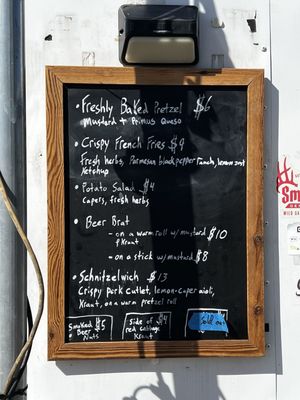 • Freshly Baked Pretzel $6
Mustard + Primus Queso
• Crispy French Fries $9
Fresh herbs, Parmesan black pepper ranch, lemon zest
Ketchup
• Potato Salad $4
Capers, fresh herbs
• Beer Brat
- on a warm roll w/ mustard $10
& Kraut
- on a stick w/ mustard $8
• Schnitzelwich $13
Crispy pork cutlet, lemon-caper aioli,
Kraut, on a warm pretzel roll
Smoked $5
Beer
Nuts
Side of $4
red cabbage
Kraut
Sold out